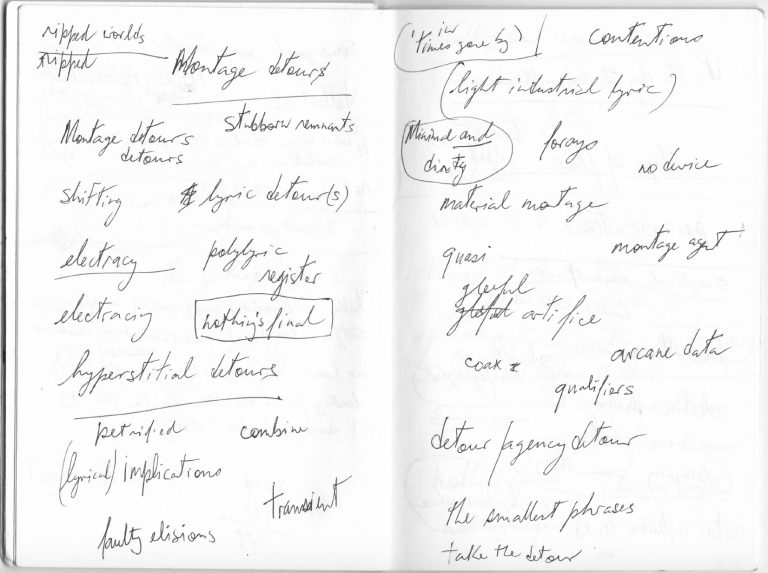 ripped worlds
ripped
Montage detours
stubborn remnants
Montage detours
detours
shifting
lyric detour(s)
electracy
polylyric
register
electracing
nothing's final
hyperstitial detours
petrified
combine
(lyrical) implications
transient
faulty elisions
('in
times gone by)
contentions
(light industrial lyric)
Minimal and
dirty
forays
no device
material montage
montage agent
quasi
gleeful
artifice
coax
arcane data
qualifiers
detour agency detour
the smallest phrases
take the detour